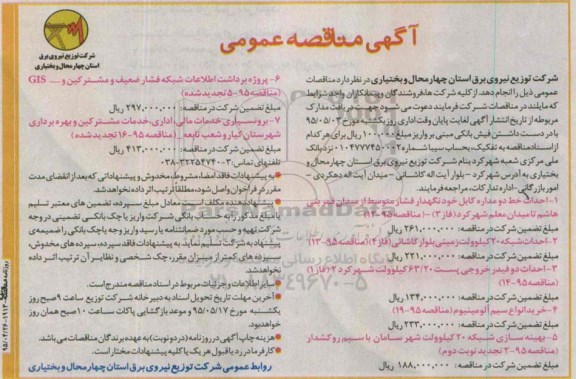 آگهی مناقصه عمومی
شرکت توزیع نیروی برق
استان چهارمحال و بختیاری
شرکت توزیع نیروی برق استان چهارمحال و بختیاری در نظر دارد مناقصات
عمومی ذیل را انجام دهد. از کلیه شرکت ها، فروشندگان و پیمانکاران واجد شرایط
که مایلند در مناقصات شرکت فرمایند دعوت می شود جهت دریافت مدارک
مربوطه از تاریخ انتشار آگهی لغایت پایان وقت اداری روز یکشنبه مورخ ۹۵/۰۵/۰۳
با در دست داشتن فیش بانکی مبنی بر واریز مبلغ ۱۰۰،۰۰۰ ریال برای هر کدام
از اسناد مناقصه به تفکیک، بحساب سیبا شماره ۰۱۰۴۷۷۷۴۵۰۰۰۲ نزد بانک
ملی مرکزی شعبه شهرکرد بنام شرکت توزیع نیروی برق استان چهارمحال و
بختیاری به آدرس شهرکرد - بلوار آیت اله کاشانی - میدان آیت اله دهکردی -
امور بازرگانی - اداره تدارکات، مراجعه فرمایند.
۱-احداث خط دو مداره کابل خودنگهدار فشار متوسط از میدان قمر بنی
هاشم تا میدان معلم شهرکرد (فاز ۳) - (مناقصه ۹۵-۱۲)
مبلغ تضمین شرکت در مناقصه: ۲۶۱،۰۰۰،۰۰۰ ریال
۲-احداث شبکه ۲۰ کیلوولت زمینی بلوار کاشانی (فاز ۴) (مناقصه ۹۵-۱۳)
مبلغ تضمین شرکت در مناقصه: ۲۲۱،۰۰۰،۰۰۰ ریال
۳-احداث دو فیدر خروجی پست ۶۳/۲۰ کیلوولت شهرکرد ۲ (فاز ۱)
(مناقصه ۹۵-۱۴)
مبلغ تضمین شرکت در مناقصه: ۱۳۴،۰۰۰،۰۰۰ ریال
۴-خرید انواع سیم آلومینیوم (مناقصه ۹۵-۱۹)
مبلغ تضمین شرکت در مناقصه: ۲۳۳،۰۰۰،۰۰۰ ریال
۵-بهینه سازی شبکه ۲۰ کیلوولت شهر سامان با سیم روکشدار
(مناقصه ۹۵-۲ تجدید نوبت دوم)
مبلغ تضمین شرکت در مناقصه: ۱۸۸،۰۰۰،۰۰۰ ریال
۶- پروژه برداشت اطلاعات شبکه فشار ضعیف و مشترکین و ... GIS
(مناقصه ۹۵-۵ تجدید شده)
مبلغ تضمین شرکت در مناقصه: ۲۹۷،۰۰۰،۰۰۰ ریال
۷-برونسپاری خدمات مالی، اداری، خدمات مشترکین و بهره برداری
شهرستان کیار و شعب تابعه (مناقصه ۹۵-۱۶ تجدید شده)
مبلغ تضمین شرکت در مناقصه: ۴۱۳،۰۰۰،۰۰۰ ریال
تلفنهای تماس: ۳-۳۲۲۵۴۷۴۰-۰۳۸
به پیشنهادات فاقد امضا، مشروط، مخدوش و پیشنهاداتی که بعد از انقضای مدت
مقرر در فراخوان واصل شود، مطلقا ترتیب اثر داده نخواهد شد.
پیشنهاد دهنده مکلف است معادل مبلغ سپرده، تضمین های معتبر تسلیم
شرکت تهیه و حسب مورد ضمانتنامه یا رسید واریز وجه یا چک بانکی را ضمیمه‌ی
پیشنهاد به شرکت تسلیم نماید. به پیشنهادات فاقد سپرده، سپرده های مخدوش،
سپرده های کمتر از میزان مقرر، چک شخصی و نظایر آن ترتیب اثر داده
نخواهد شد.
سایر اطلاعات و جزئیات مربوط در اسناد مناقصه مندرج است.
آخرین مهلت تاریخ تحویل اسناد به دبیرخانه شرکت توزیع ساعت ۹ صبح روز
یکشنبه مورخ ۹۵/۰۵/۱۷ و موعد بازگشایی پاکات ساعت ۱۰ صبح همان روز
خواهد بود.
هزینه چاپ آگهی در روزنامه (در دو نوبت) به عهده برندگان مناقصات می باشد.
کارفرما در رد یا قبول هر یک یا کلیه پیشنهادات مختار است.
روابط عمومی شرکت توزیع نیروی برق استان چهارمحال و بختیاری